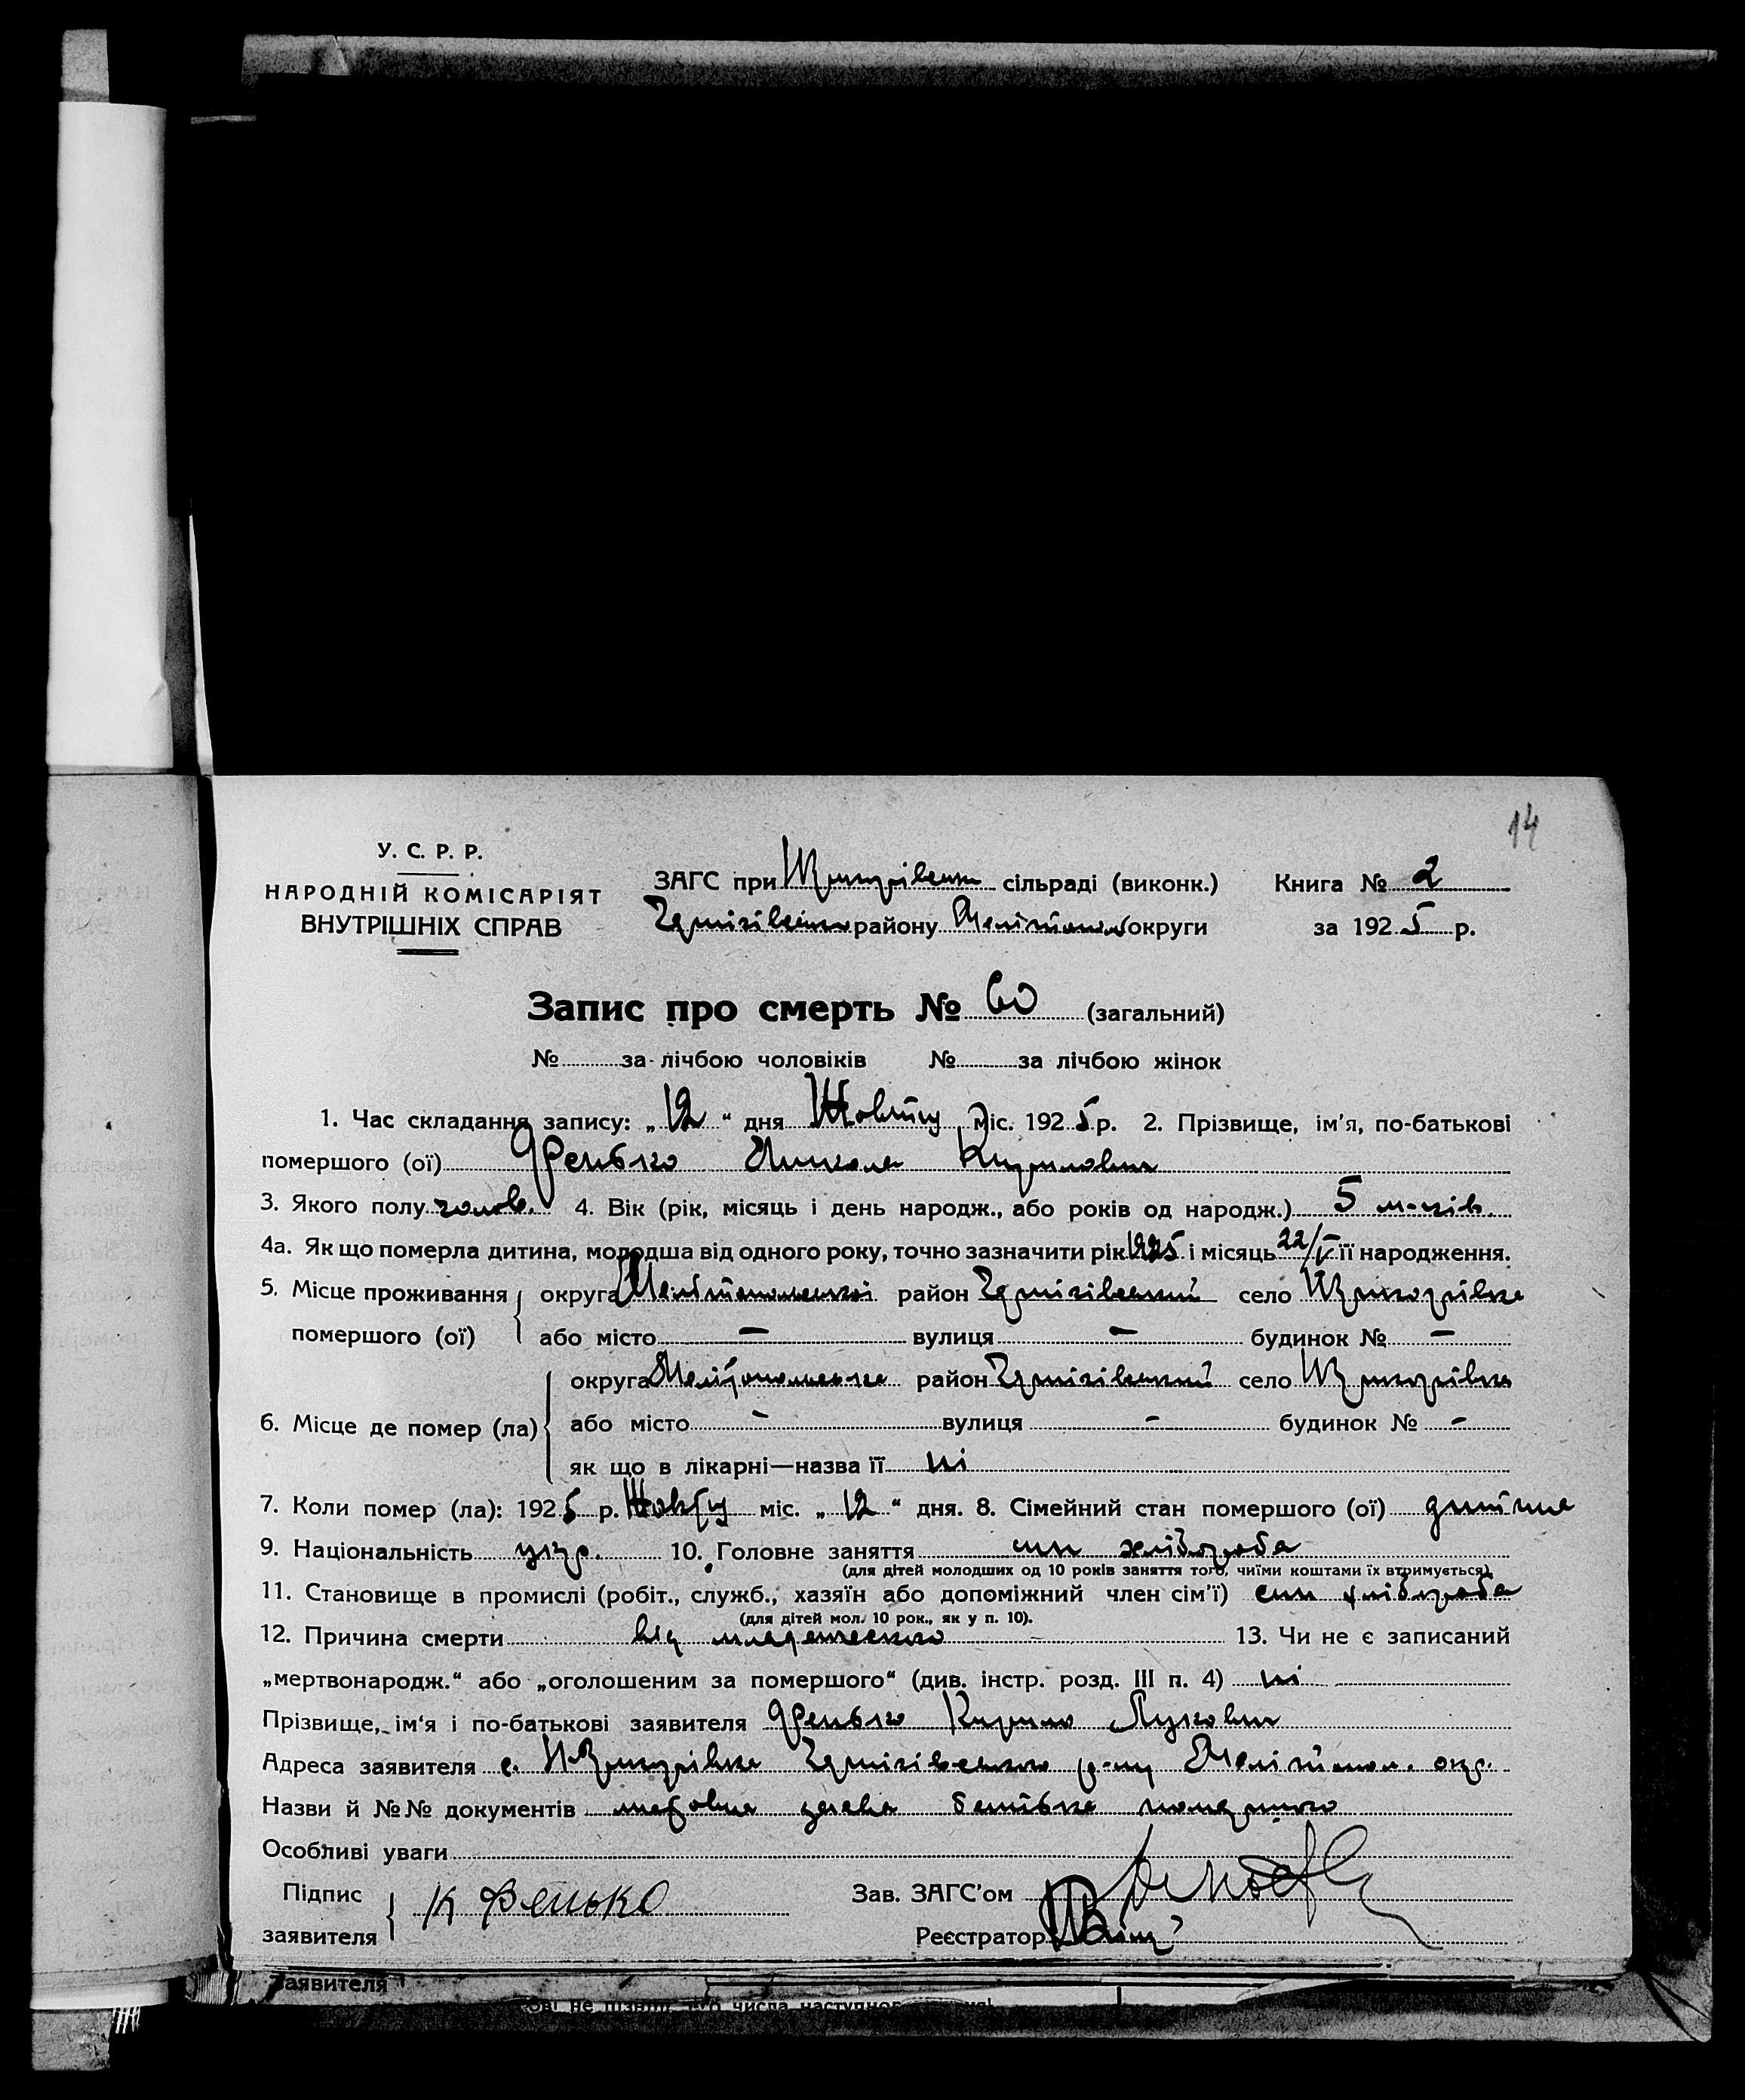 14
У. С. Р. Р.
НАРОДНІЙ КОМІСАРІЯТ
ВНУТРІШНІХ СПРАВ
ЗАГС при сільраді (виконк.) Книга № 2
району округи за 1925 р.
Запис про смерть № 60 (загальний)
№ за лічбою чоловіків № за лічбою жінок
1. Час складання запису: „ 12 “ дня Жовтну міс. 1925 р. 2. Прізвище, ім'я, по-батькові
помершого (ої) Фенько Микола Кирилович
3. Якого полу чолов. 4. Вік (рік, місяць і день народж., або років од народж.) 5 м-ців.
4а. Як що померла дитина, молодша від одного року, точно зазначити рік 1925 і місяць 22/V її народження.
5. Місце проживання округа Мелітопольської район Чернігівський село
помершого (ої) або місто — вулиця — будинок № —
округа Мелітопольська район Чернігівський село
6. Місце де помер (ла) або місто - вулиця - будинок № -
як що в лікарні—назва її ні
7. Коли помер (ла): 1925 р. міс. „ 12 “ дня. 8. Сімейний стан помершого (ої)
9. Національність укр. 10. Головне заняття син хлібороба
(для дітей молодших од 10 років заняття того, чиїми коштами їх втримується)
11. Становище в промислі (робіт., служб., хазяїн або допоміжний член сім'ї) син хлібороба
(для дітей мол. 10 рок., як у п. 10).
12. Причина смерти від младенческого 13. Чи не є записаний
„мертвонародж.“ або „оголошеним за помершого“ (див. інстр. розд. III п. 4) ні
Прізвище, ім'я і по-батькові заявителя Фенько Кирило Лукович
Адреса заявителя с. Чернігівського р-ну Мелітопол. окр.
Назви й №№ документів заява батька
Особливі уваги
Підпис К Фенько Зав. ЗАГС'ом
заявителя Реєстратор
Заявителя